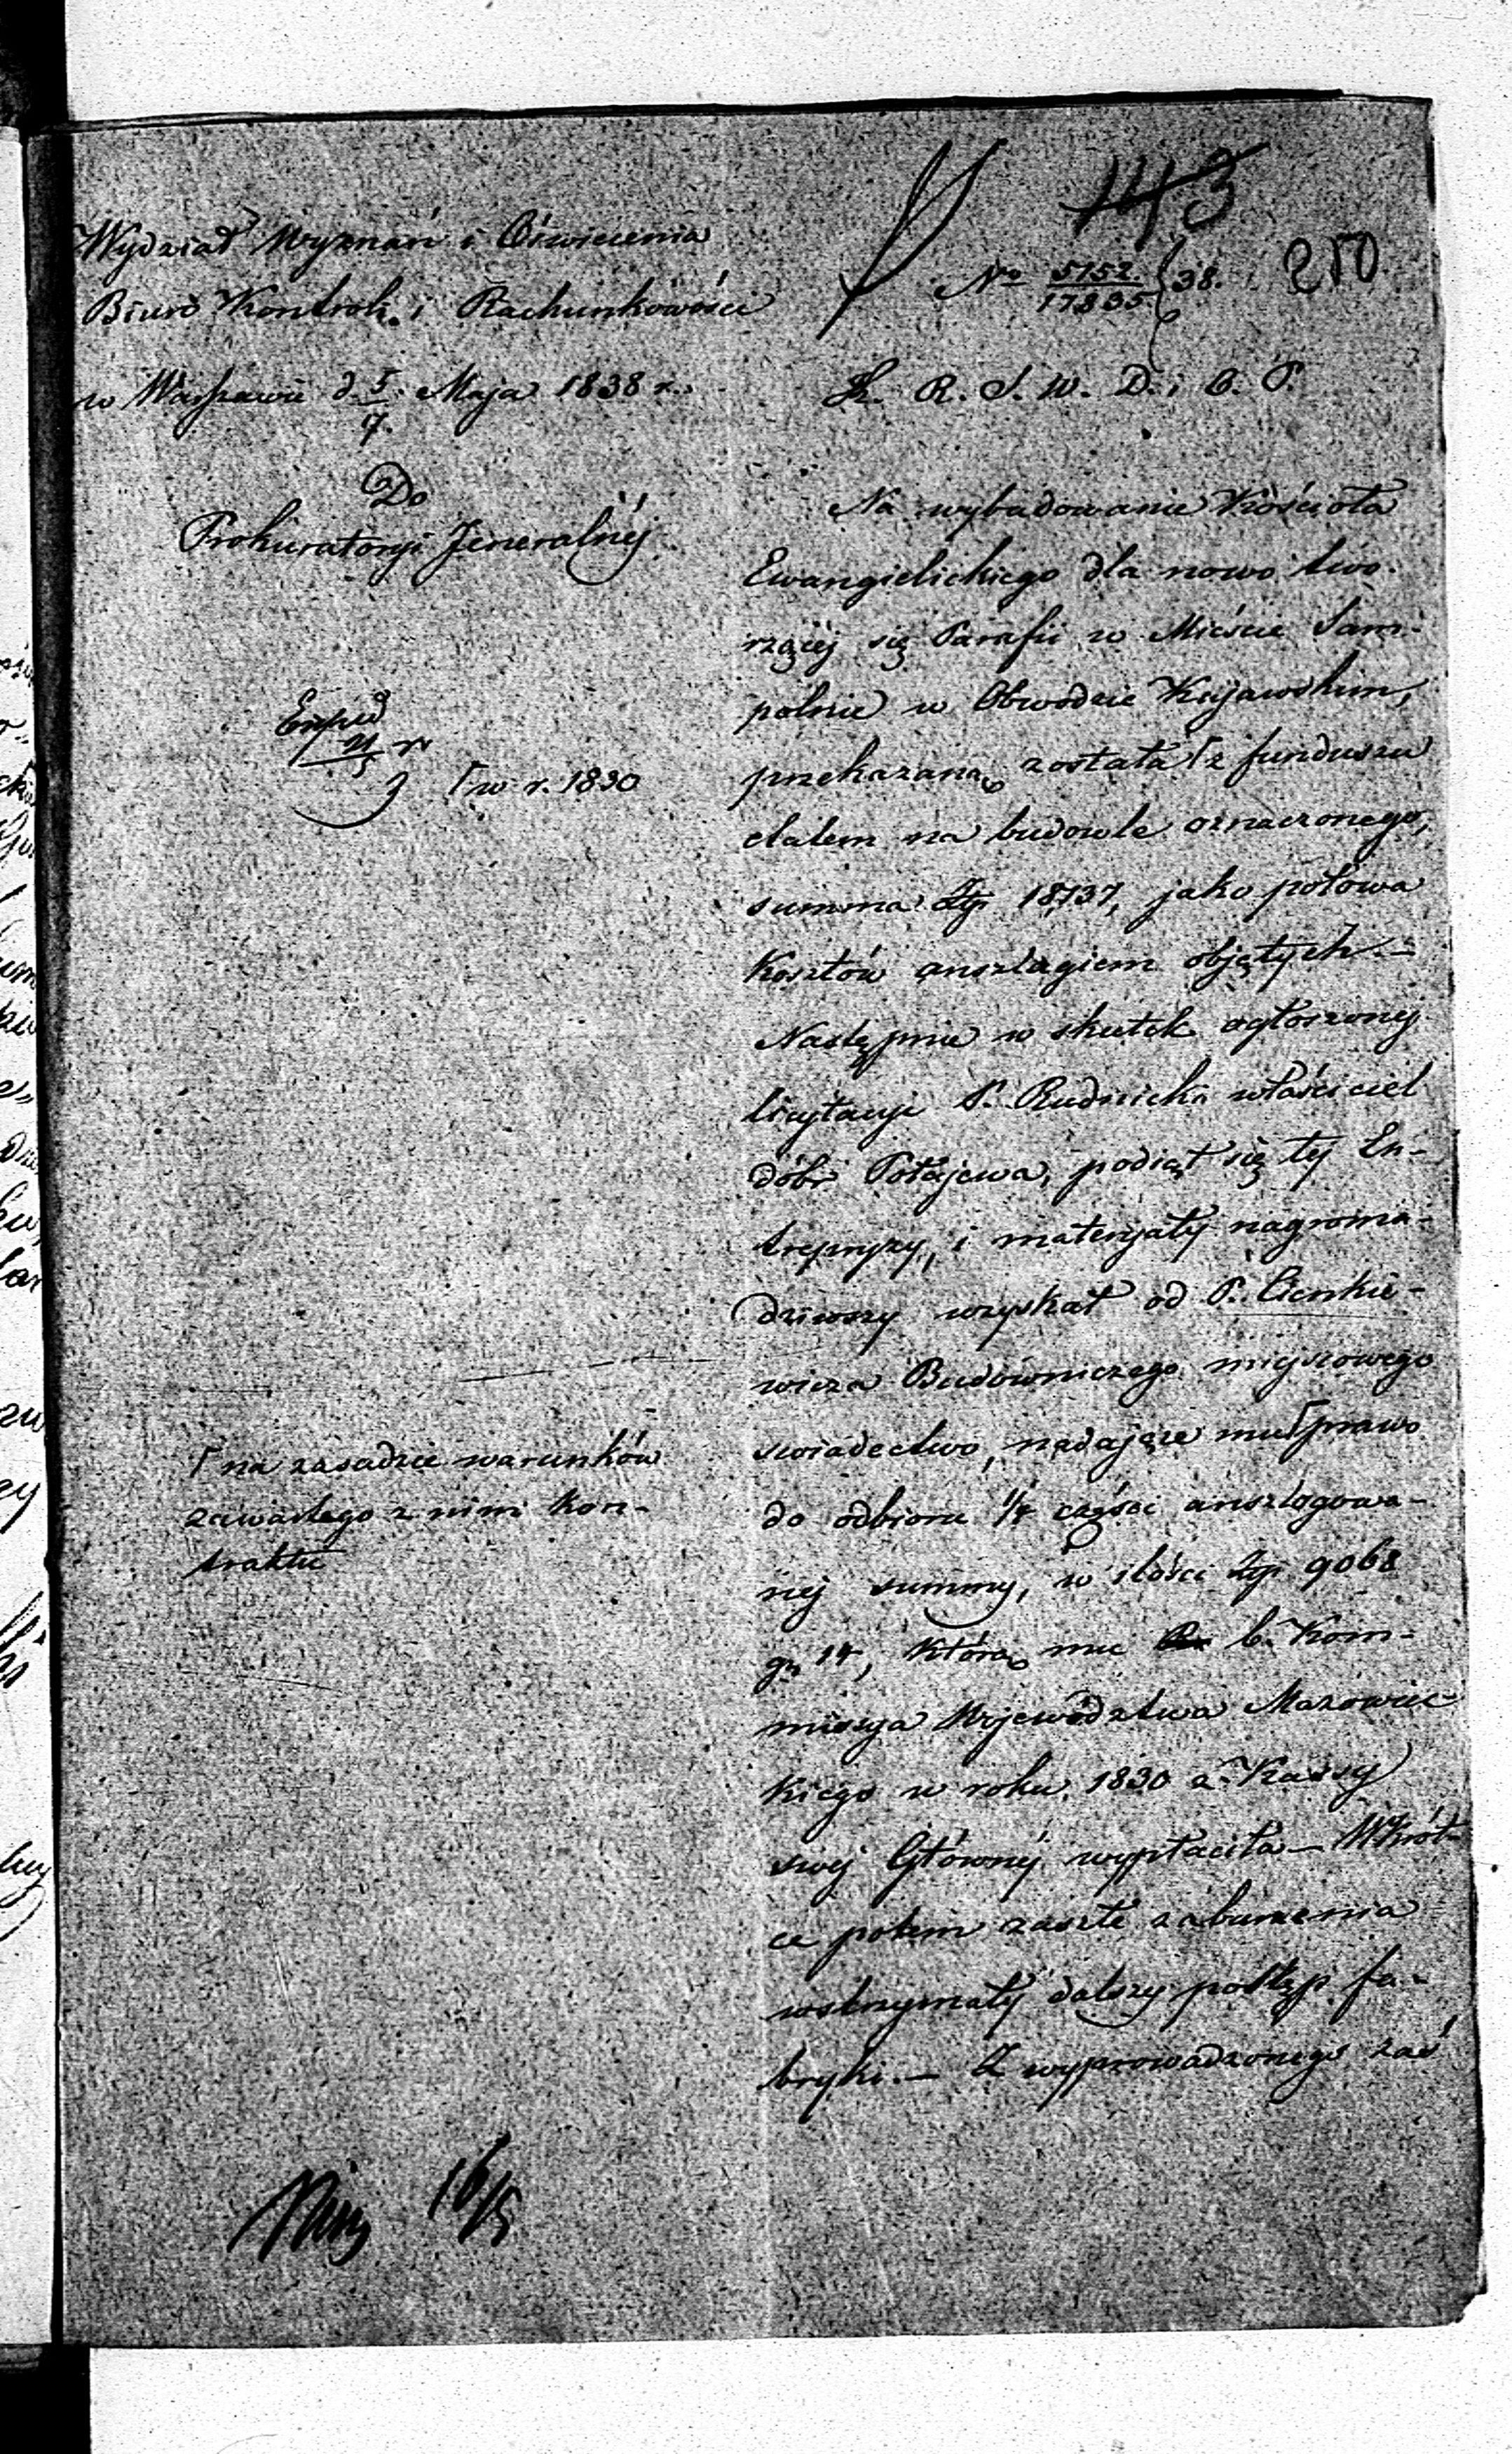 143
250
Wydział Wyznań i Oświecenia
Biuro Kontroli i Rachunkowości
w Warszawie d. 5/7. Maja 1838 r.
Do
Prokuratoryi Jeneralnéj
Nº 5152./17835 38.
K. R. S. W. D. i O. P.
Na wybudowanie Kościoła
Ewangielickiego dla nowo two-
rzącéj się Parafii w Mieście Sam-
polnie w Obwodzie Kujawskim,
przekazaną została Γ z funduszu
etatem na budowle oznaczonego,
summa Złp. 18,137, jako połowa
Kosztów anszlagiem objętych. —
Następnie w skutek ogłoszonej
licytacyi P. Rudnicki właściciel
dóbr Połajewa, podiął się tej En-
trepryzy, i materyały nagroma-
dziwszy uzyskał od P. Cienkie-
wicza Budowniczego miejscowego
swiadectwo, nadające mu Γ prawo
do odbioru 1/4 części anszlogowa-
nej summy, w ilości Złp. 9068
gr. 14, którą mu b. Kom-
missya Wojewodztwa Mazowiec-
kiego w roku 1830 z Kassy
swej Głównej wypłaciła — Wkrót-
ce potem zaszłe zaburzenia
wstrzymały dalszy postęp fa-
bryki. — Z wyprowadzonego zaś
Γ w r. 1830
Γ na zasadzie warunków
zawartego z nim Kon-
traktu
16/5